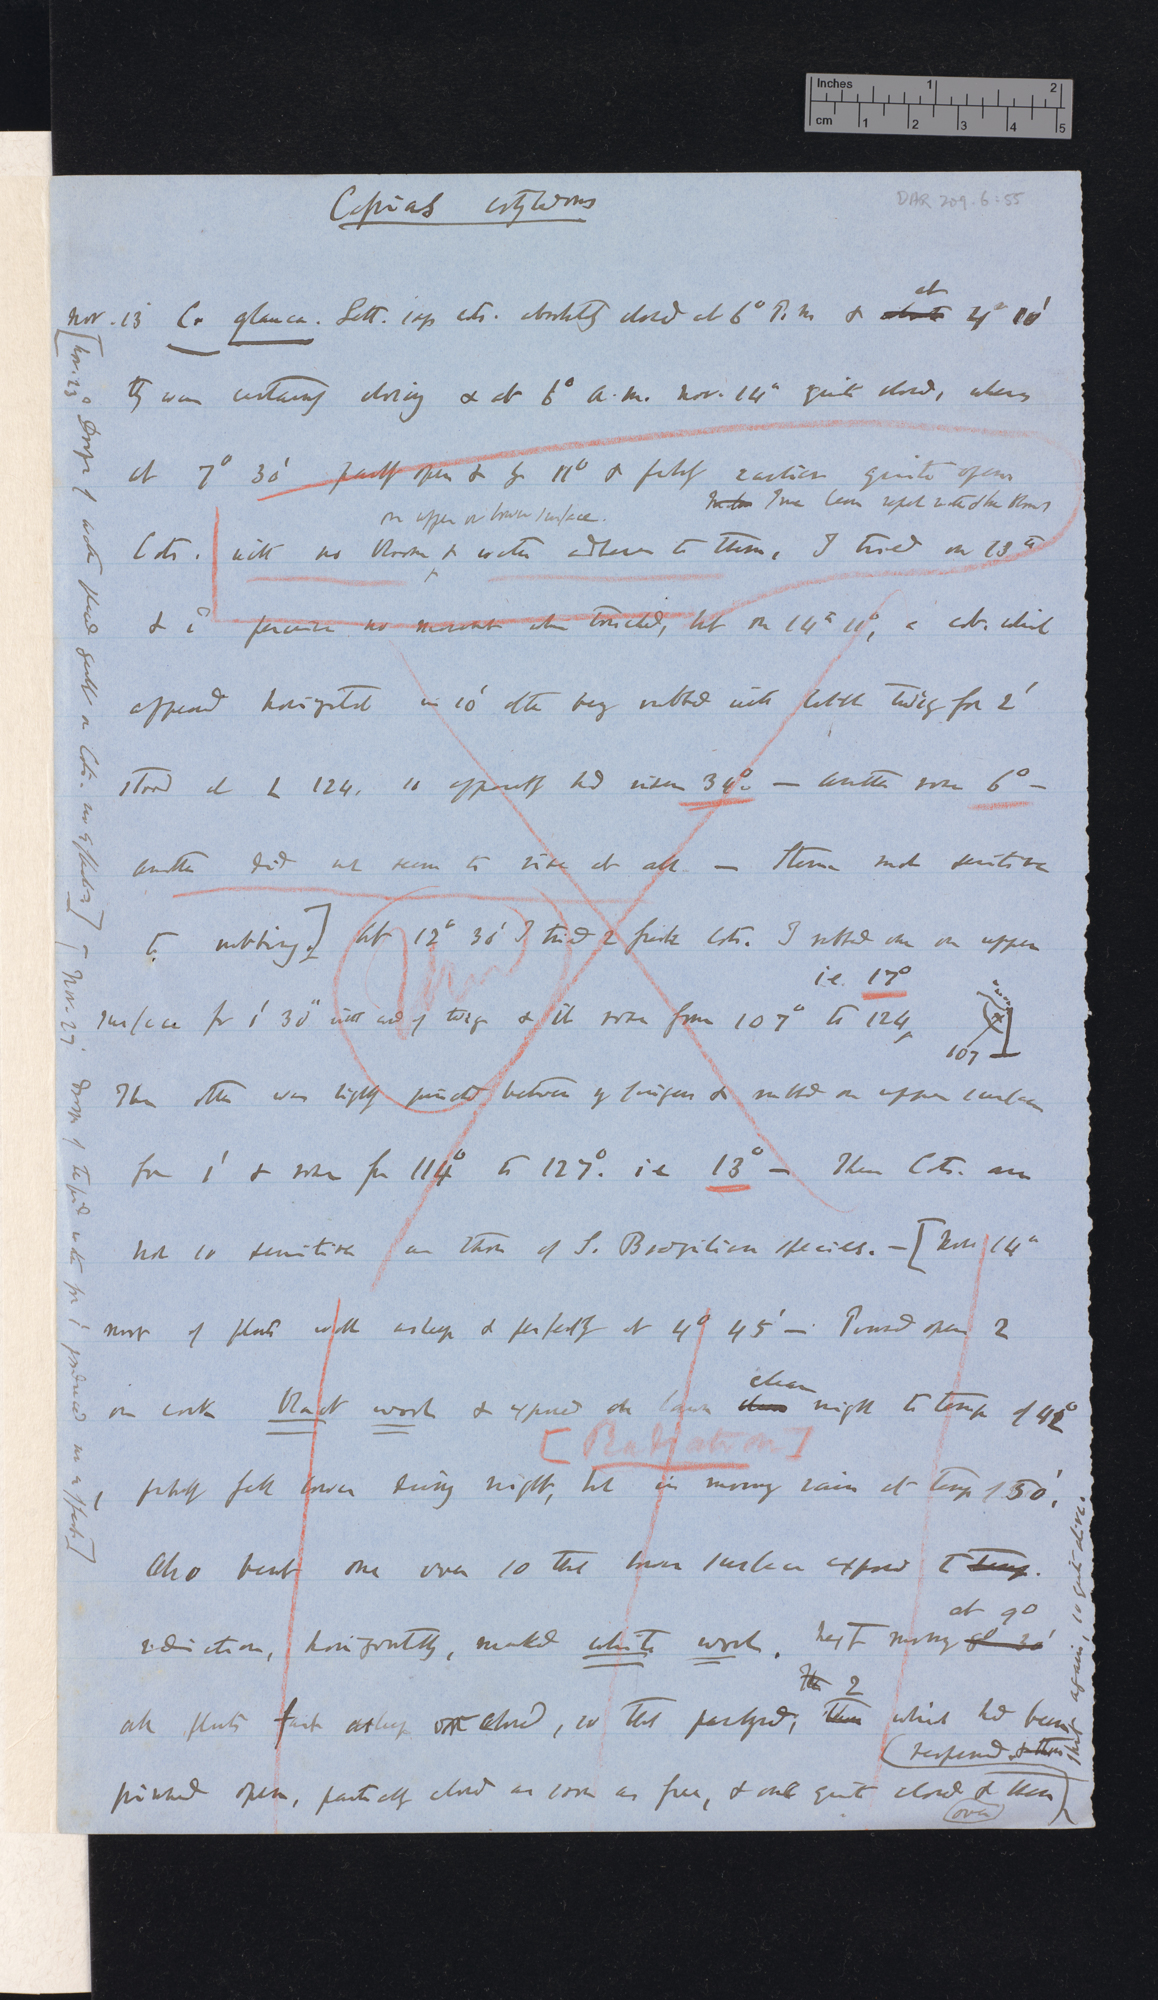 Inches 1 2
cm 1 2 3 4 5
DAR 209.6:55
Cassias cotyledons
Nov. 13 C. glauca. Seed. cots. absolutely closed at 6° P.m &
at
4° 10'
they were certainly closing & at 6° a.m. Nov. 14th quite closed, whereas
at 7° 30' partly open & by 11° & probably earlier quite open
on upper or lower surface.
Cots. with no bloom & water adheres to them, I tried on 13th
& c^d perceive no movement when touched, but on 14th 11°, a cot. which
appeared horizontal in 10' after being rubbed with little twig for 2'
stood at L 124. so apparently had risen 34°. — another rose 6° —
another did not seem to rise at all — Stems not sensitive
to rubbing.] At 12° 30' I tried 2 fresh Cots. I rubbed one on upper
i.e. 17°
surface for 1' 30" with end of twig & it rose from 107° to 124
107
The other was lightly pinched between my fingers & rubbed on upper surface
for 1' & rose from 114° to 127°. i.e 13° — These Cots. are
not so sensitive as those of S. Brazilian species. — [Nov 14th
most of plants well asleep & perfectly at 4° 45' — Pinned open 2
on cork black wool & exposed on lawn
clear
night to temp of 42°
[Radiation]
probably fell lower during night, but in morning rain at temp of 50'.
Also bent one over so that lower surface exposed to temp.
radiation, horizontally, marked white wool. Next morning
at 9°
all plants fast asleep & closed, so that packed,
2
which had been
pinned open, partially closed as soon as free, & only quite closed & then
reopened
(over)
shut again, so quite alive.
[Nov. 23° Drops of water fixed gently on Cots. no effect] — [Nov. 27' drops of tepid water for 1' produced no effect]